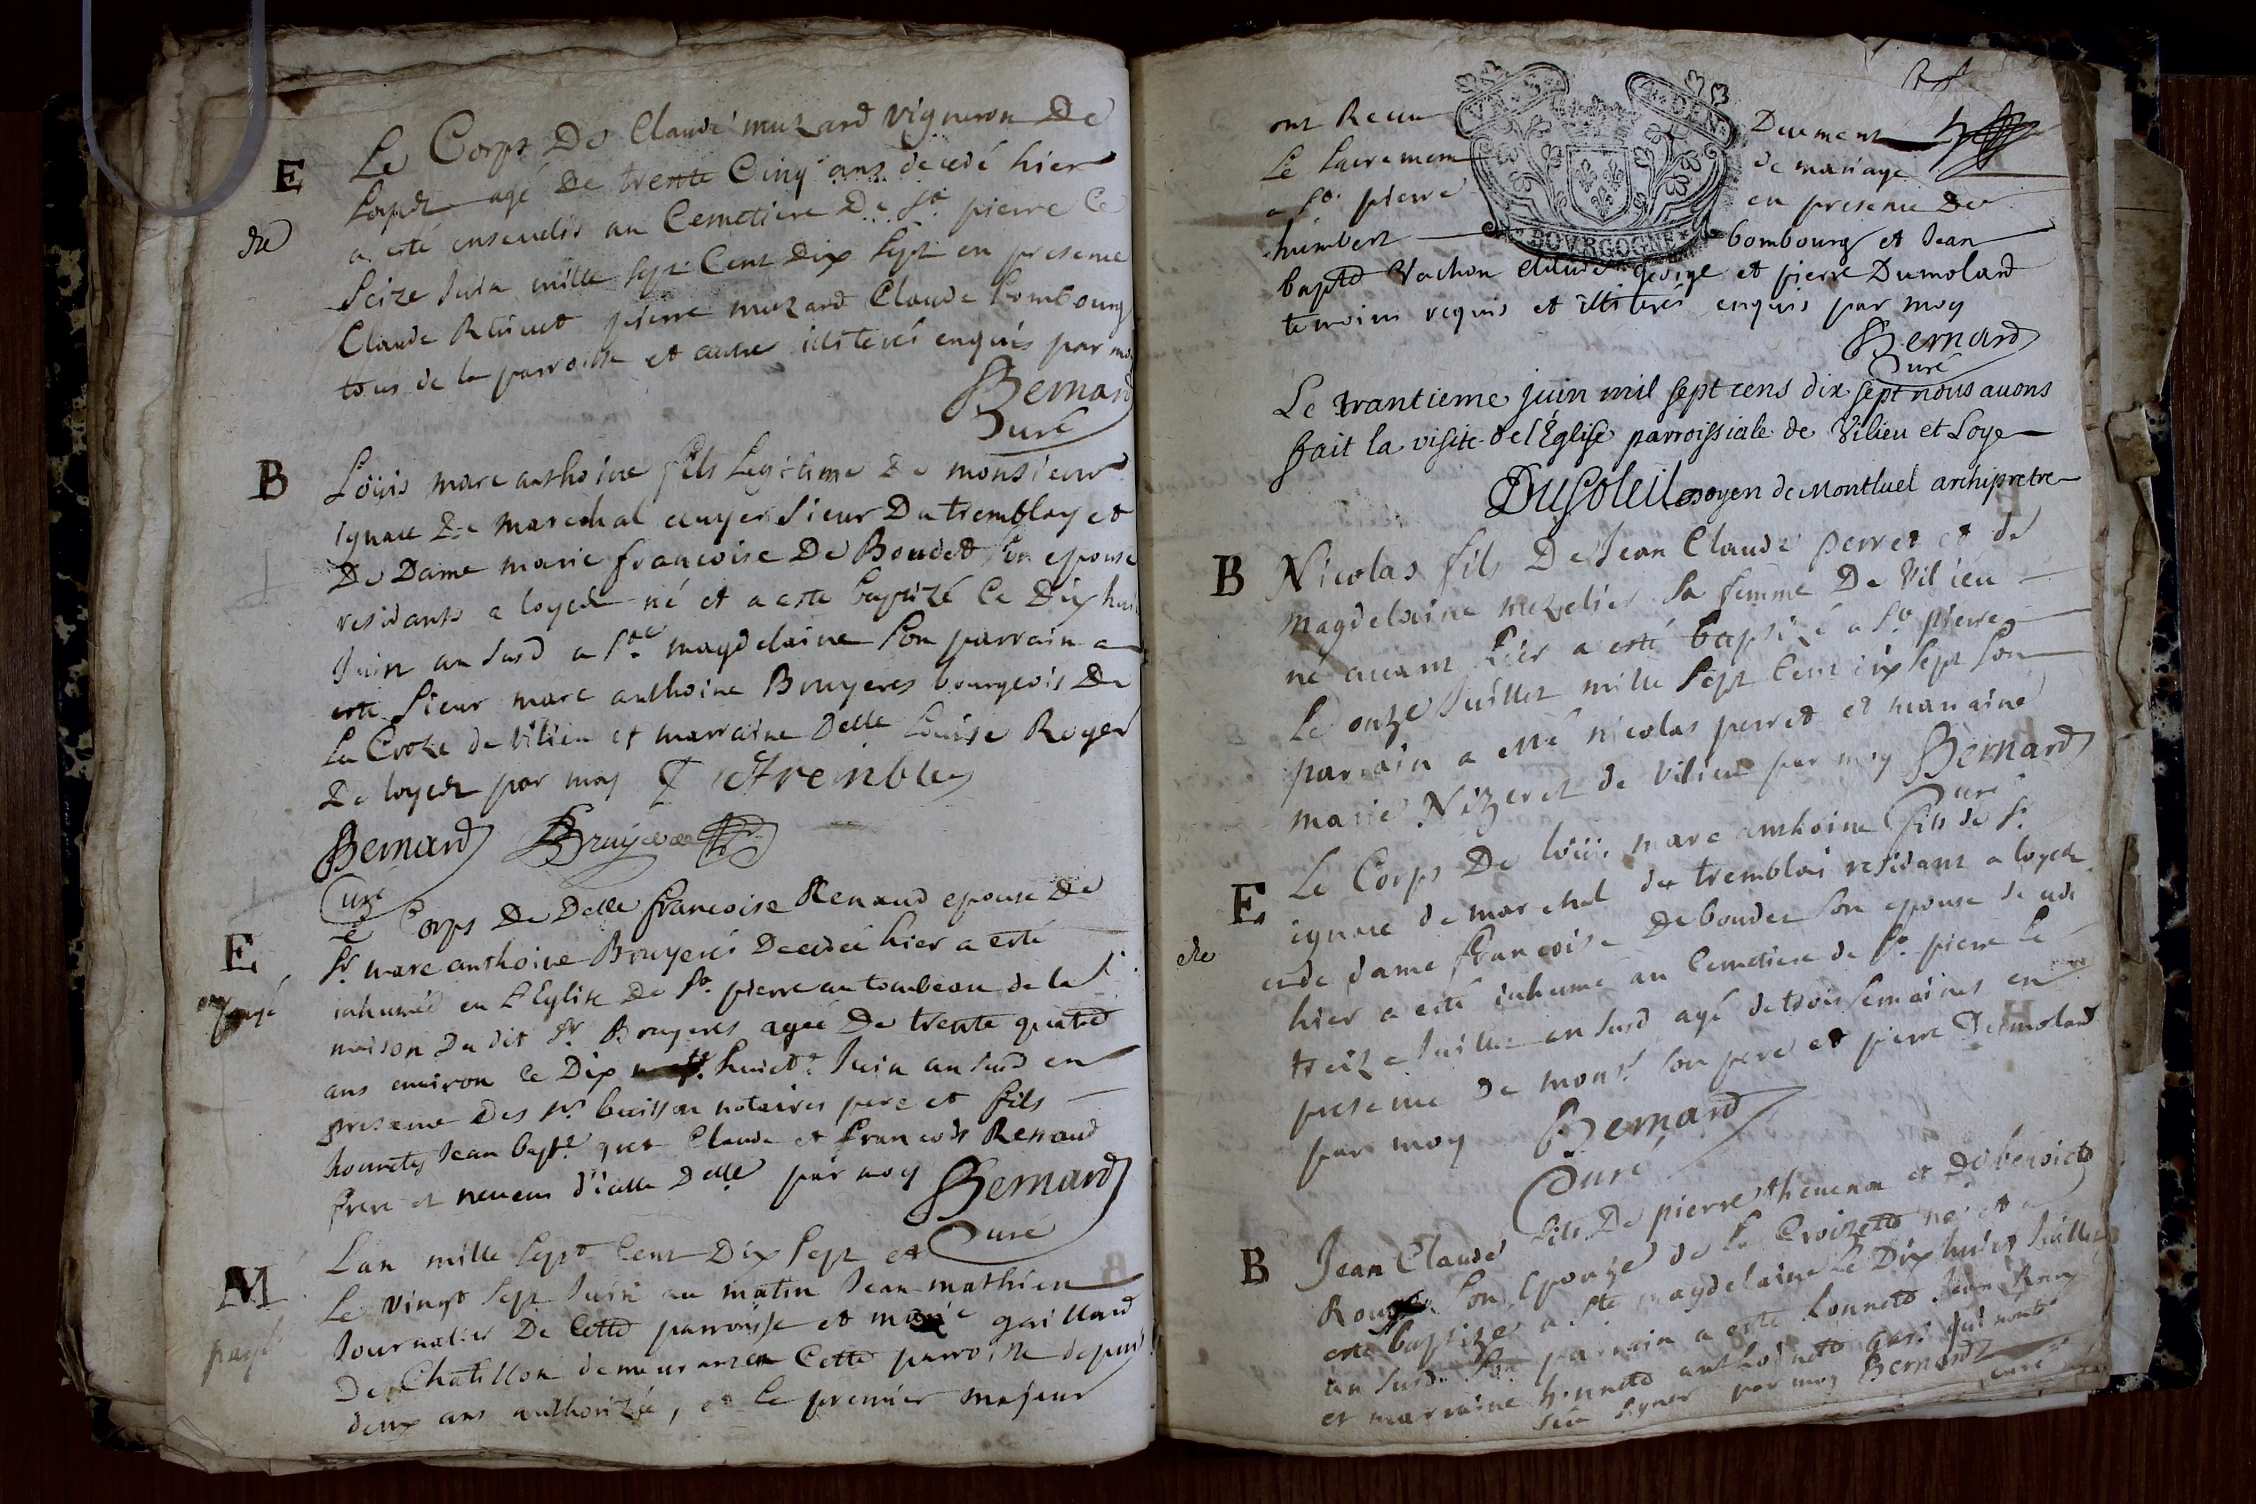 E
Le Corps De Claude muzard vigneron De
Loyett agé de trente Cinq ans decedé hier
a esté enseuelis au Cemetiere De St. pierre Ce
Seize Juin mille sept Cent Dix Sept en presence
Claude pierre muzard Claude bombourg
tous de la parroisse et autre illiterés enquis par moy
Bernard
Curé
B
Loüis marc anthoine fils legitime De monsieur
ignace De marechal ecuyer Sieur Du tremblay et
De Dame marie francoise De Boudet son epouse
residants a loyett né et a esté baptizé Ce Dix huit
Juin an susd a Ste magdelaine Son parrain a
esté Sieur marc anthoine Bruyeres bourgeois De
la Croze de Vilieu et marraine Delle Louise Roger
De loyett par moy
Bernard Bruyere
Curé
E
payé
Le Corps De Delle francoise Renaud epouse De
Sr. marc anthoine Bruyeres Decedée hier a esté
inhumée en L'Eglise De St. pierre au tombeau de la
maison Du dit Sr. Bruyeres agée De trente quatre
ans environ le Dix huict Juin an susd en
presence des srs buisson notaires pere et fils
honnetes Jean bapte. Claude et francois Renaud
frere et neveu d'icelle Delle par moy Bernard
Curé
M
payé
Lan mille Sept Cent Dix Sept et
Le vingt Sept Juin au matin Jean mathieu
Journalier De Cette parroisse et marie gaillard
De Chatillon demeurante en Cette parroisse depuis
deux ans authorizée, et le premier majeur
VN S 4 DEN
BOVRGOGNE
ont Receu Deuement
Le Sacrement de mariage
a St. pierre en presence De
humbert bombourg et Jean
bapte Vachon Claude george et pierre Dumolard
temoins requis et illiterés enquis par moy
Bernard
Curé
Le trantieme juin mil sept cens dix sept nous auons
fait la visite de l'Église parroissiale de Vilieu et Loye
Dusoleil doyen de Montluel archipretre
B
Nicolas fils De Jean Claude perret et de
magdelaine mezelier Sa femme De Vilieu
né auant hier a esté baptizé a St. pierre
Le onze Juillet mille Sept Cent dix Sept Son
parrain a esté nicolas perret et marraine
marie Nizeret de Vilieu par moy Bernard
Curé
E
Le Corps De loüis marc anthoine fils de Sr.
ignace de marechal du tremblai residant a loyett
et de dame francoise De boudet Son epouse decedé
hier a esté inhumé au Cemetiere de St. pierre le
treize Juillet an susd agé de trois semaines en
presence De monsr. son pere et pierre Dumolard
par moy Bernard
Curé
B
Jean Claude fils De pierre theuenon et De benoicte
Son Epouze de la Croizette né et a
esté baptizé a Ste magdelaine Le Dix huict Juillet
an Susd. Son parrain a esté honnete Jean
et marraine honnete anthoinette qui n'ont
Sceu signer par moy Bernard curé